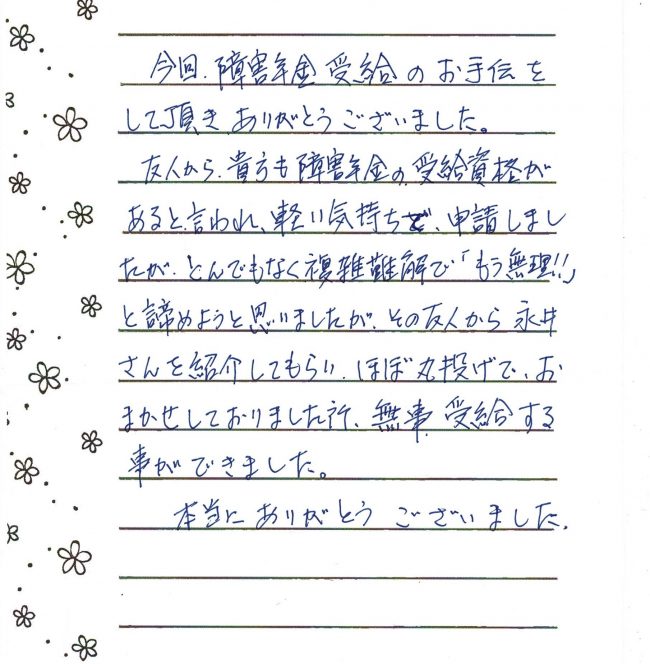 今回、障害年金受給のお手伝を
して頂きありがとうございました。
友人から、貴方も障害年金の、受給資格が
あると言われ、軽い気持ちで、申請しまし
たが、とんでもなく複雑難解で「もう無理!!」
と諦めようと思いましたが、その友人から永井
さんを紹介してもらい、ほぼ丸投げで、お
まかせしておりました所、無事、受給する
事ができました。
本当にありがとうございました。